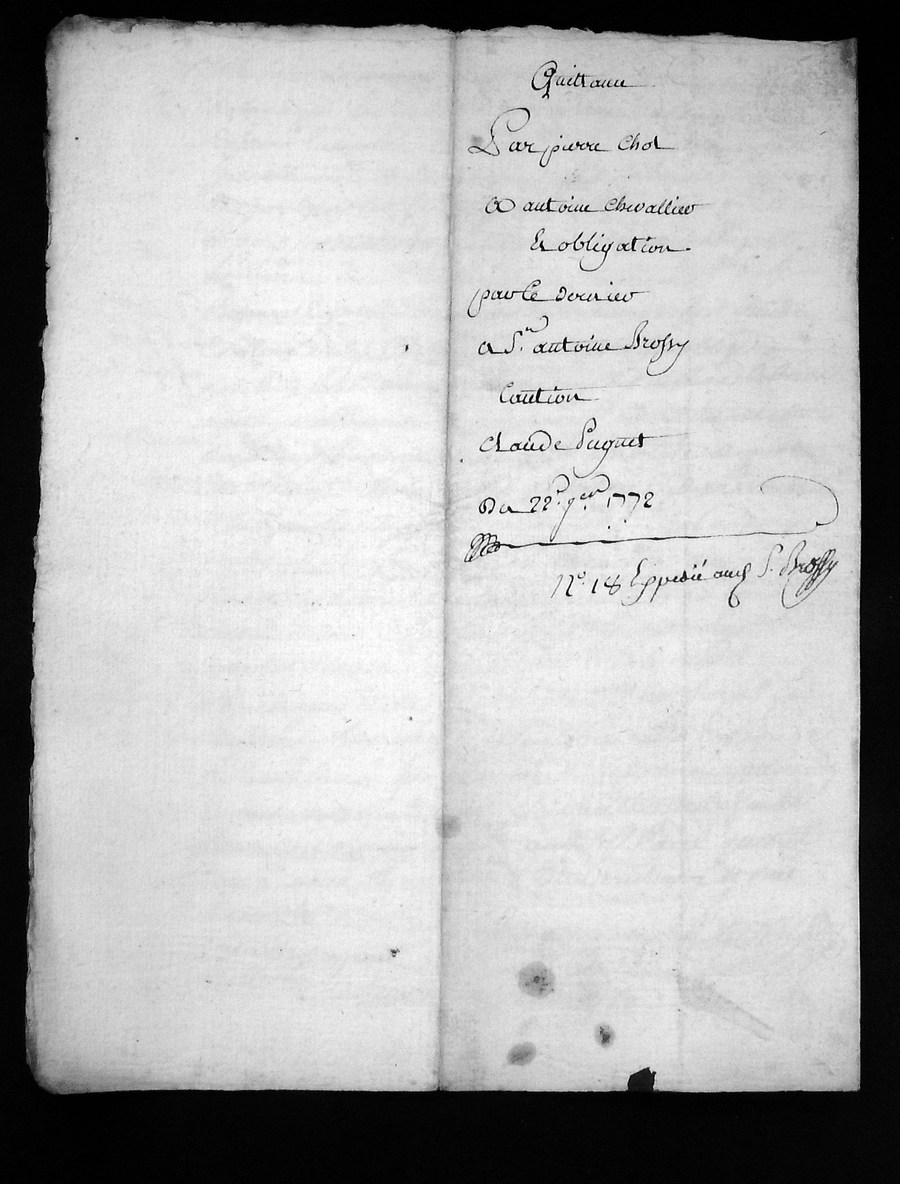 Quittance
Par pierre Chol
a antoine Chevallier
Et obligation.
par Ce dernier
a S.r antoine Brossy
Caution
Claude Puguet
Du 22.e 9.bre 1772
N.o 18 Expedié aud S. Brossy